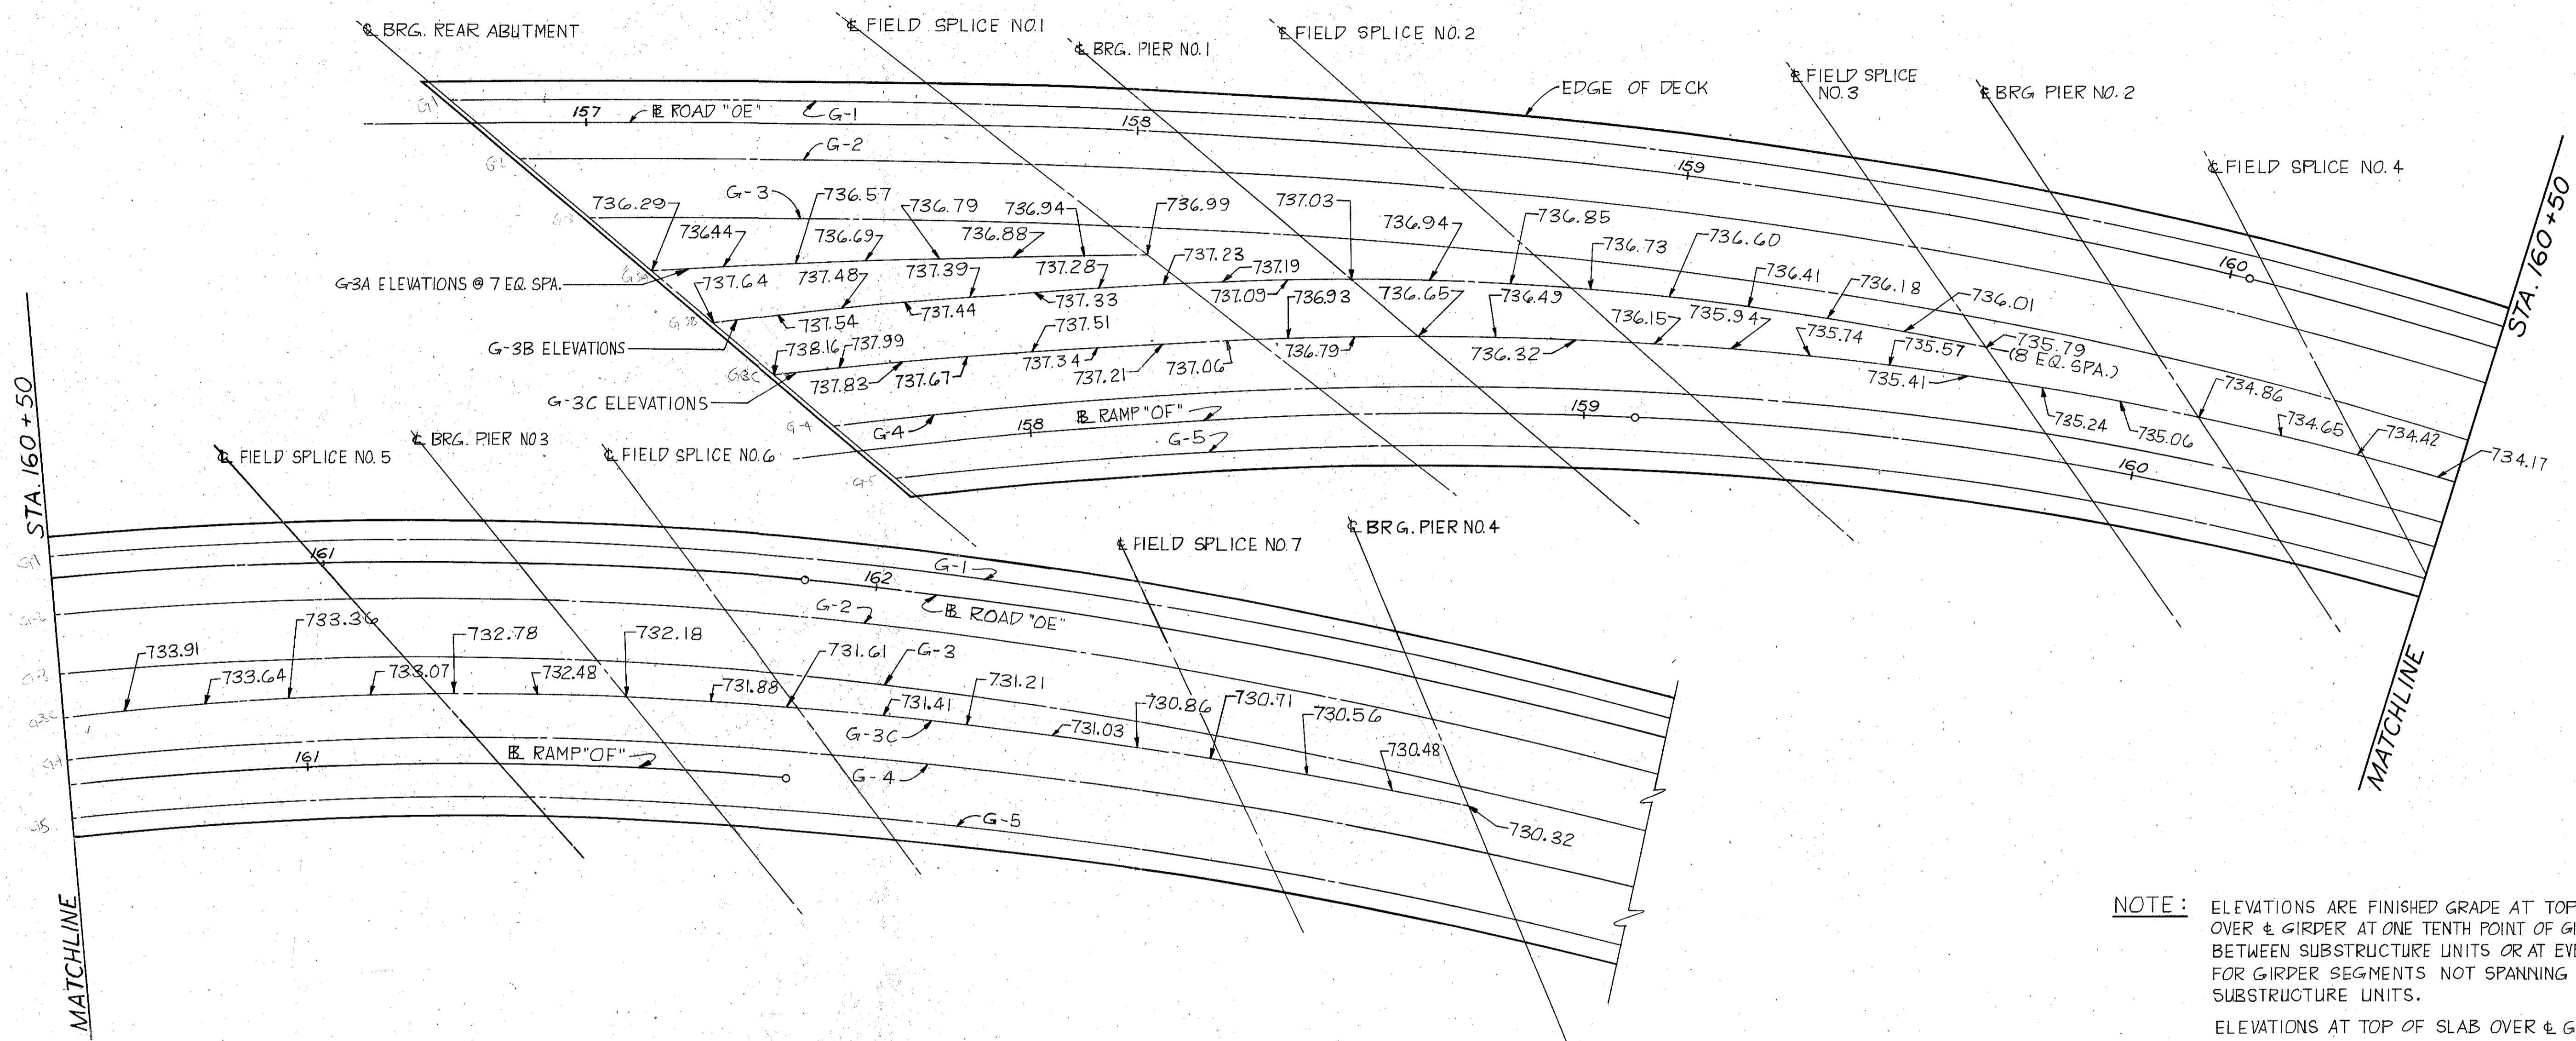 ℄ BRG. REAR ABUTMENT
℄ FIELD SPLICE NO.1
℄ BRG. PIER NO.1
℄ FIELD SPLICE NO.2
EDGE OF DECK
℄ FIELD SPLICE
NO.3
℄ BRG PIER NO.2
℄ FIELD SPLICE NO. 4
STA. 160+50
G1
157
℄ ROAD "OE"
G-1
158
159
160
G-2
G-2
G-3
G-3
736.29
736.44
736.57
736.69
736.79
736.88
736.94
736.99
737.03
736.94
736.85
736.73
736.60
736.41
736.18
736.01
735.79
(8 EQ. SPA.)
G-3A ELEVATIONS @ 7 EQ. SPA.
G3A
737.64
737.54
737.48
737.44
737.39
737.33
737.28
737.23
737.19
737.09
G-3B ELEVATIONS
G3B
738.16
737.99
737.83
737.67
737.51
737.34
737.21
737.06
736.93
736.79
736.65
736.49
736.32
736.15
735.94
735.74
735.57
735.41
735.24
735.06
734.86
734.65
734.42
734.17
G-3C ELEVATIONS
G3C
G-4
G-4
158
℄ RAMP "OF"
159
160
G-5
G-5
MATCHLINE
STA. 160+50
℄ FIELD SPLICE NO.5
℄ BRG. PIER NO3
℄ FIELD SPLICE NO.6
℄ FIELD SPLICE NO.7
℄ BRG. PIER NO.4
G1
161
162
G-1
G-2
G-2
℄ ROAD "OE"
G3
G-3
733.91
733.64
733.36
733.07
732.78
732.48
732.18
731.88
731.61
731.41
731.21
731.03
730.86
730.71
730.56
730.48
730.32
G3C
G-3C
G4
161
℄ RAMP "OF"
G-4
G5
G-5
MATCHLINE
NOTE: ELEVATIONS ARE FINISHED GRADE AT TOP
OVER ℄ GIRDER AT ONE TENTH POINT OF GI
BETWEEN SUBSTRUCTURE UNITS OR AT EVE
FOR GIRDER SEGMENTS NOT SPANNING
SUBSTRUCTURE UNITS.
ELEVATIONS AT TOP OF SLAB OVER ℄ G